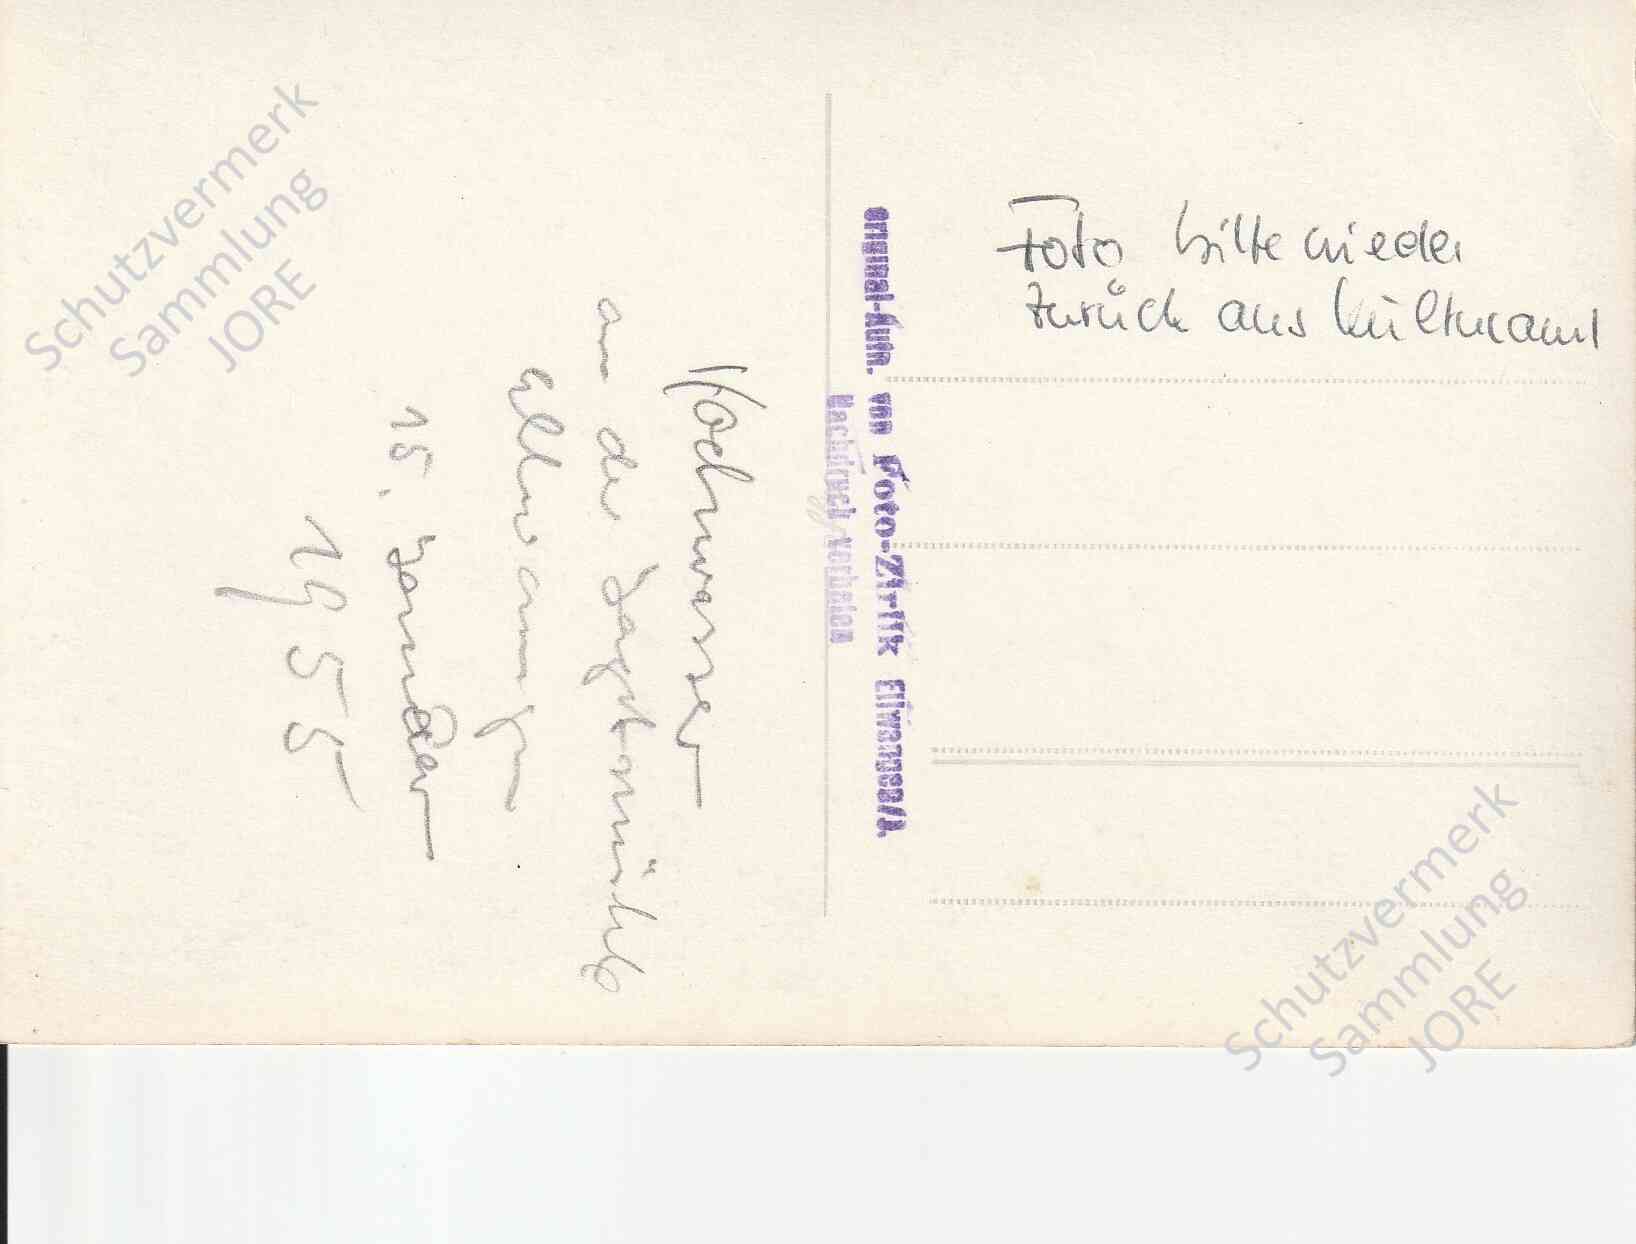 Schutzvermerk
Sammlung
JORE
Hochwasser
an der Jagstmühle
Ellwangen
15. Januar
1955
Original-Aufn. von Foto-Zirlik Ellwangen/J.
Nachdruck verboten
Foto bitte wieder
zurück ans Kulturamt
Schutzvermerk
Sammlung
JORE